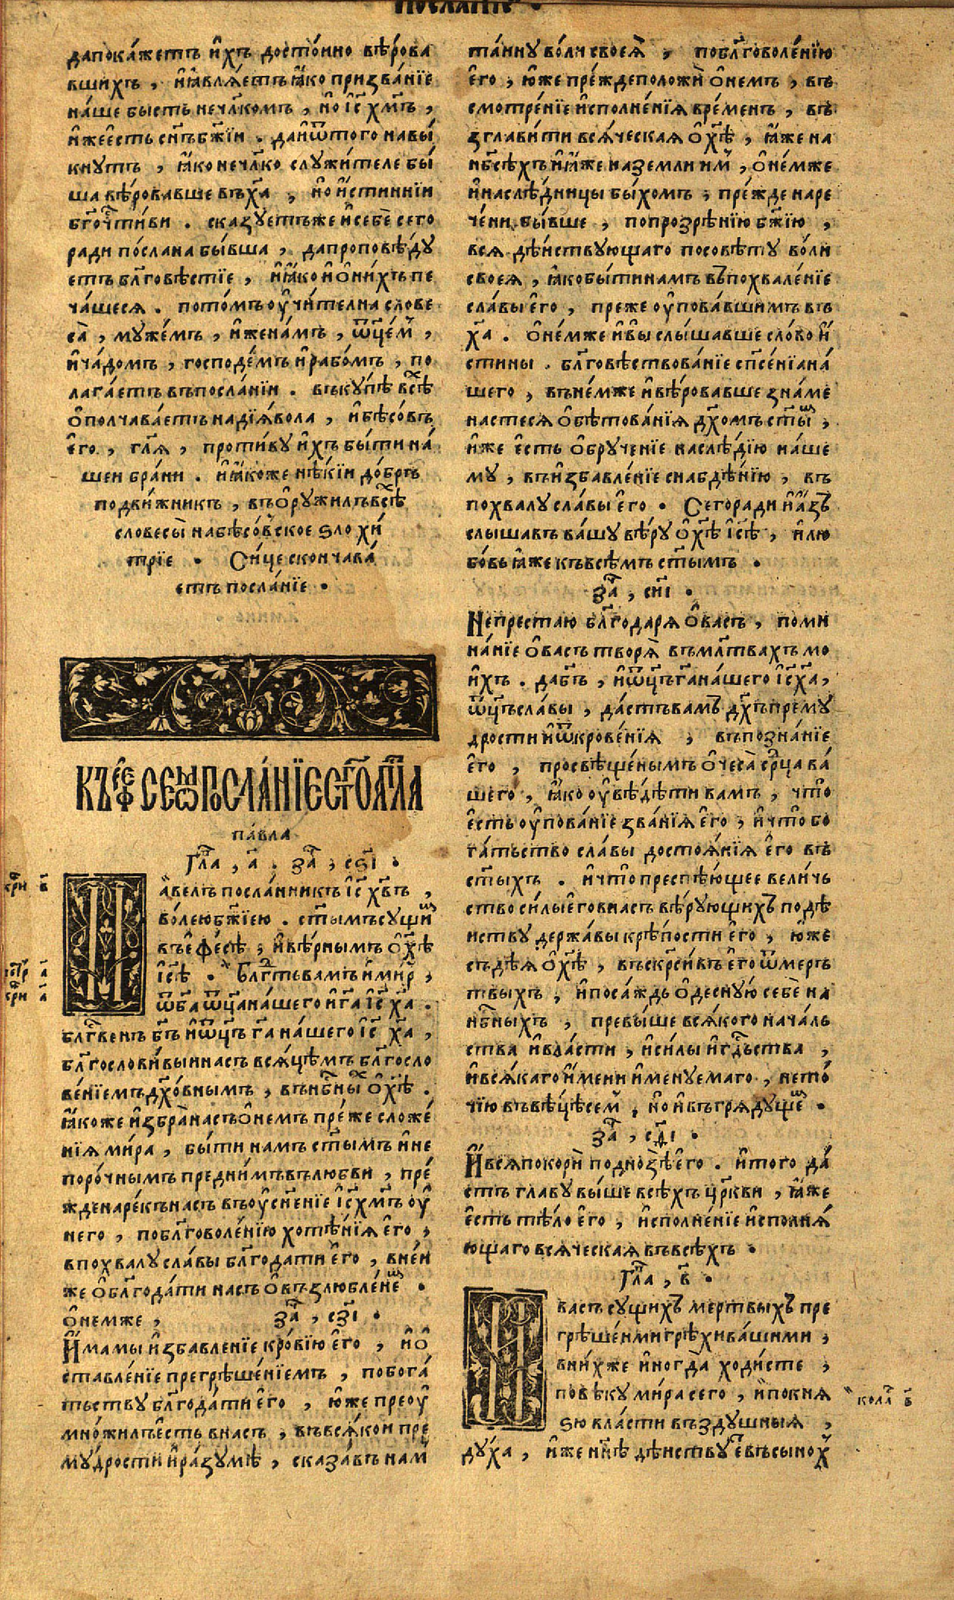 послание ·
дапокажетъ ихъ достойно вѣрова
вшихъ , иꙗвляетъꙗꙗко призвание
наше бысть нечл҃комъ , но і҃с х҃мъ ,
ижеесть сн҃ъбж҃іи . даиѿтого навы
кнутъ , ꙗко нечл҃ко служителе бы
ша вѣровавше въх҃а , но истинніи
бг҃очт҃иви . сказуетъже исебе сего
ради послана бывша , дапроповѣду
етъ бл҃говѣстіе , иꙗꙗко ионихъ пе
чашеся . потомъ оучителна слове
са , мужемъ , иженамъ , ѿц҃емъ ,
ичадомъ , господемъ ирабомъ , по
лагаетъ въпосланіи . въкупѣ всѣ
ополчаваетъ надіявола , ибѣсовъ
его , гл҃я , противу ихъ быти на
шеи брани . иꙗкоже нѣкіи добръ
подвижникъ , въоружилъвсѣ
словесы набѣсовское ѕло хи
тріе · Сице скончава
етъ посланіе ·
КЪЕФЕСЕѠМПОСЛАНІЕСТ҃ГОАПЛ҃А
павла
Гл҃а , а҃ . за҃ , сѕ҃і ·
Павелъ посланникъ і҃с х҃въ ,
волеюбж҃іею . ст҃ымъ сущим
въефесѣ , ивѣрнымъ ох҃ѣ
і҃сѣ · Бл҃гть вамъ имир ,
ѿб҃а ѿц҃а нашего иг҃а і҃с х҃а .
бл҃гвенъ бг҃ъ иѿц҃ъ г҃а нашего і҃с х҃а ,
бл҃гословивыи насъ всяцѣмъ бл҃госло
веніемъдх҃овнымъ , въ нбн҃ы ох҃ѣ .
ꙗкоже избра насъ онемъ преже сложе
нія мира , быти намъ ст҃ымъ и не
порочнымъ преднимъ въ любви , пре
жденарекъ насъ въ оусн҃еніе і҃с х҃мъ оу
него , по бл҃говоленію хотѣнія его ,
в похвалу славы бл҃годати его , в неи
же обл҃годати насъ овъзлюблене ·
онемже , за҃ , сз҃і ·
Имамы избавленіе кровію его , и о
ставленіе прегрѣшеніемъ , по бога
тьству бл҃годати его , юже преоу
множилъ есть в насъ , въ всякои пре
мудрости и разумѣ , сказавъ нам
таину воли своея , по бл҃говоленію
его , юже прежде положи онемъ , въ
смотреніе исполненія временъ , въ
зглавити всяческая ох҃ѣ , ꙗже на
нбс҃ѣхъ и ꙗже на земли им , онемже
и наслѣдницы быхомъ , прежде наре
чени бывше , по прозрѣнію бж҃ію ,
вся дѣиствующаго по совѣту воли
своея , ꙗко быти намъ въ похваленіе
славы его , преже оуповавшимъ въ
х҃а . онемже и вы слышавше слово и
стины . бл҃говѣствованіе сп҃сеніа на
шего , въ немже и вѣровавше знаме
настеся обѣтованія дх҃омъ ст҃ым ,
иже есть обрученіе наслѣдію наше
му , въ избавленіе снабдѣнію , въ
похвалу славы его · Сего ради и азъ
слышавъ вашу вѣру ох҃ѣ і҃сѣ , и лю
бовь ꙗже къ всѣмъ ст҃ымъ ·
за҃ , си҃і ·
Непрестаю бл҃годаря о васъ , поми
нание о васъ творя въ мл҃твахъ мо
ихъ . да бг҃ъ , и ѿц҃ъ г҃а нашего і҃с х҃а ,
ѿц҃ъ славы , дастъ вамъ дх҃ъ прему
дрости и ѿкровенія , въ познаніе
его , просвѣщеным очеса срд҃ца ва
шего , ꙗко оувѣдѣти вамъ , что
есть оупованіе званія его , и что бо
гатьство славы достоянія его въ
ст҃ыхъ . и что преспѣющее величь
ство силы его в насъ вѣрующихъ по дѣ
иству державы крѣпости его , юже
съдѣя ох҃ѣ , въскресивъ его ѿ мерт
твыхъ , и посаждь одесную себе на
нбн҃ыхъ , превыше всякого началь
ства и власти , и силы и г҃дьства ,
и всякаго имени именуемаго , не то
чію въ вѣцѣ сем , но и въ грядущем ·
за҃ , сд҃і ·
И вся покори под нозѣ его . и того да
стъ главу выше всѣхъ цр҃кви , ꙗже
есть тѣло его , исполненіе исполня
ющаго всяческая въ всѣхъ ·
Гл҃а , в҃ ·
И васъ сущихъ мертвыхъ пре
грѣшенми грѣхи вашими ,
в нихже иногда ходисте ,
по вѣку мира сего , и по кня
ѕю власти въздушныя ,
духа , иже нн҃ѣ дѣиствуе въ сынох
кола в҃